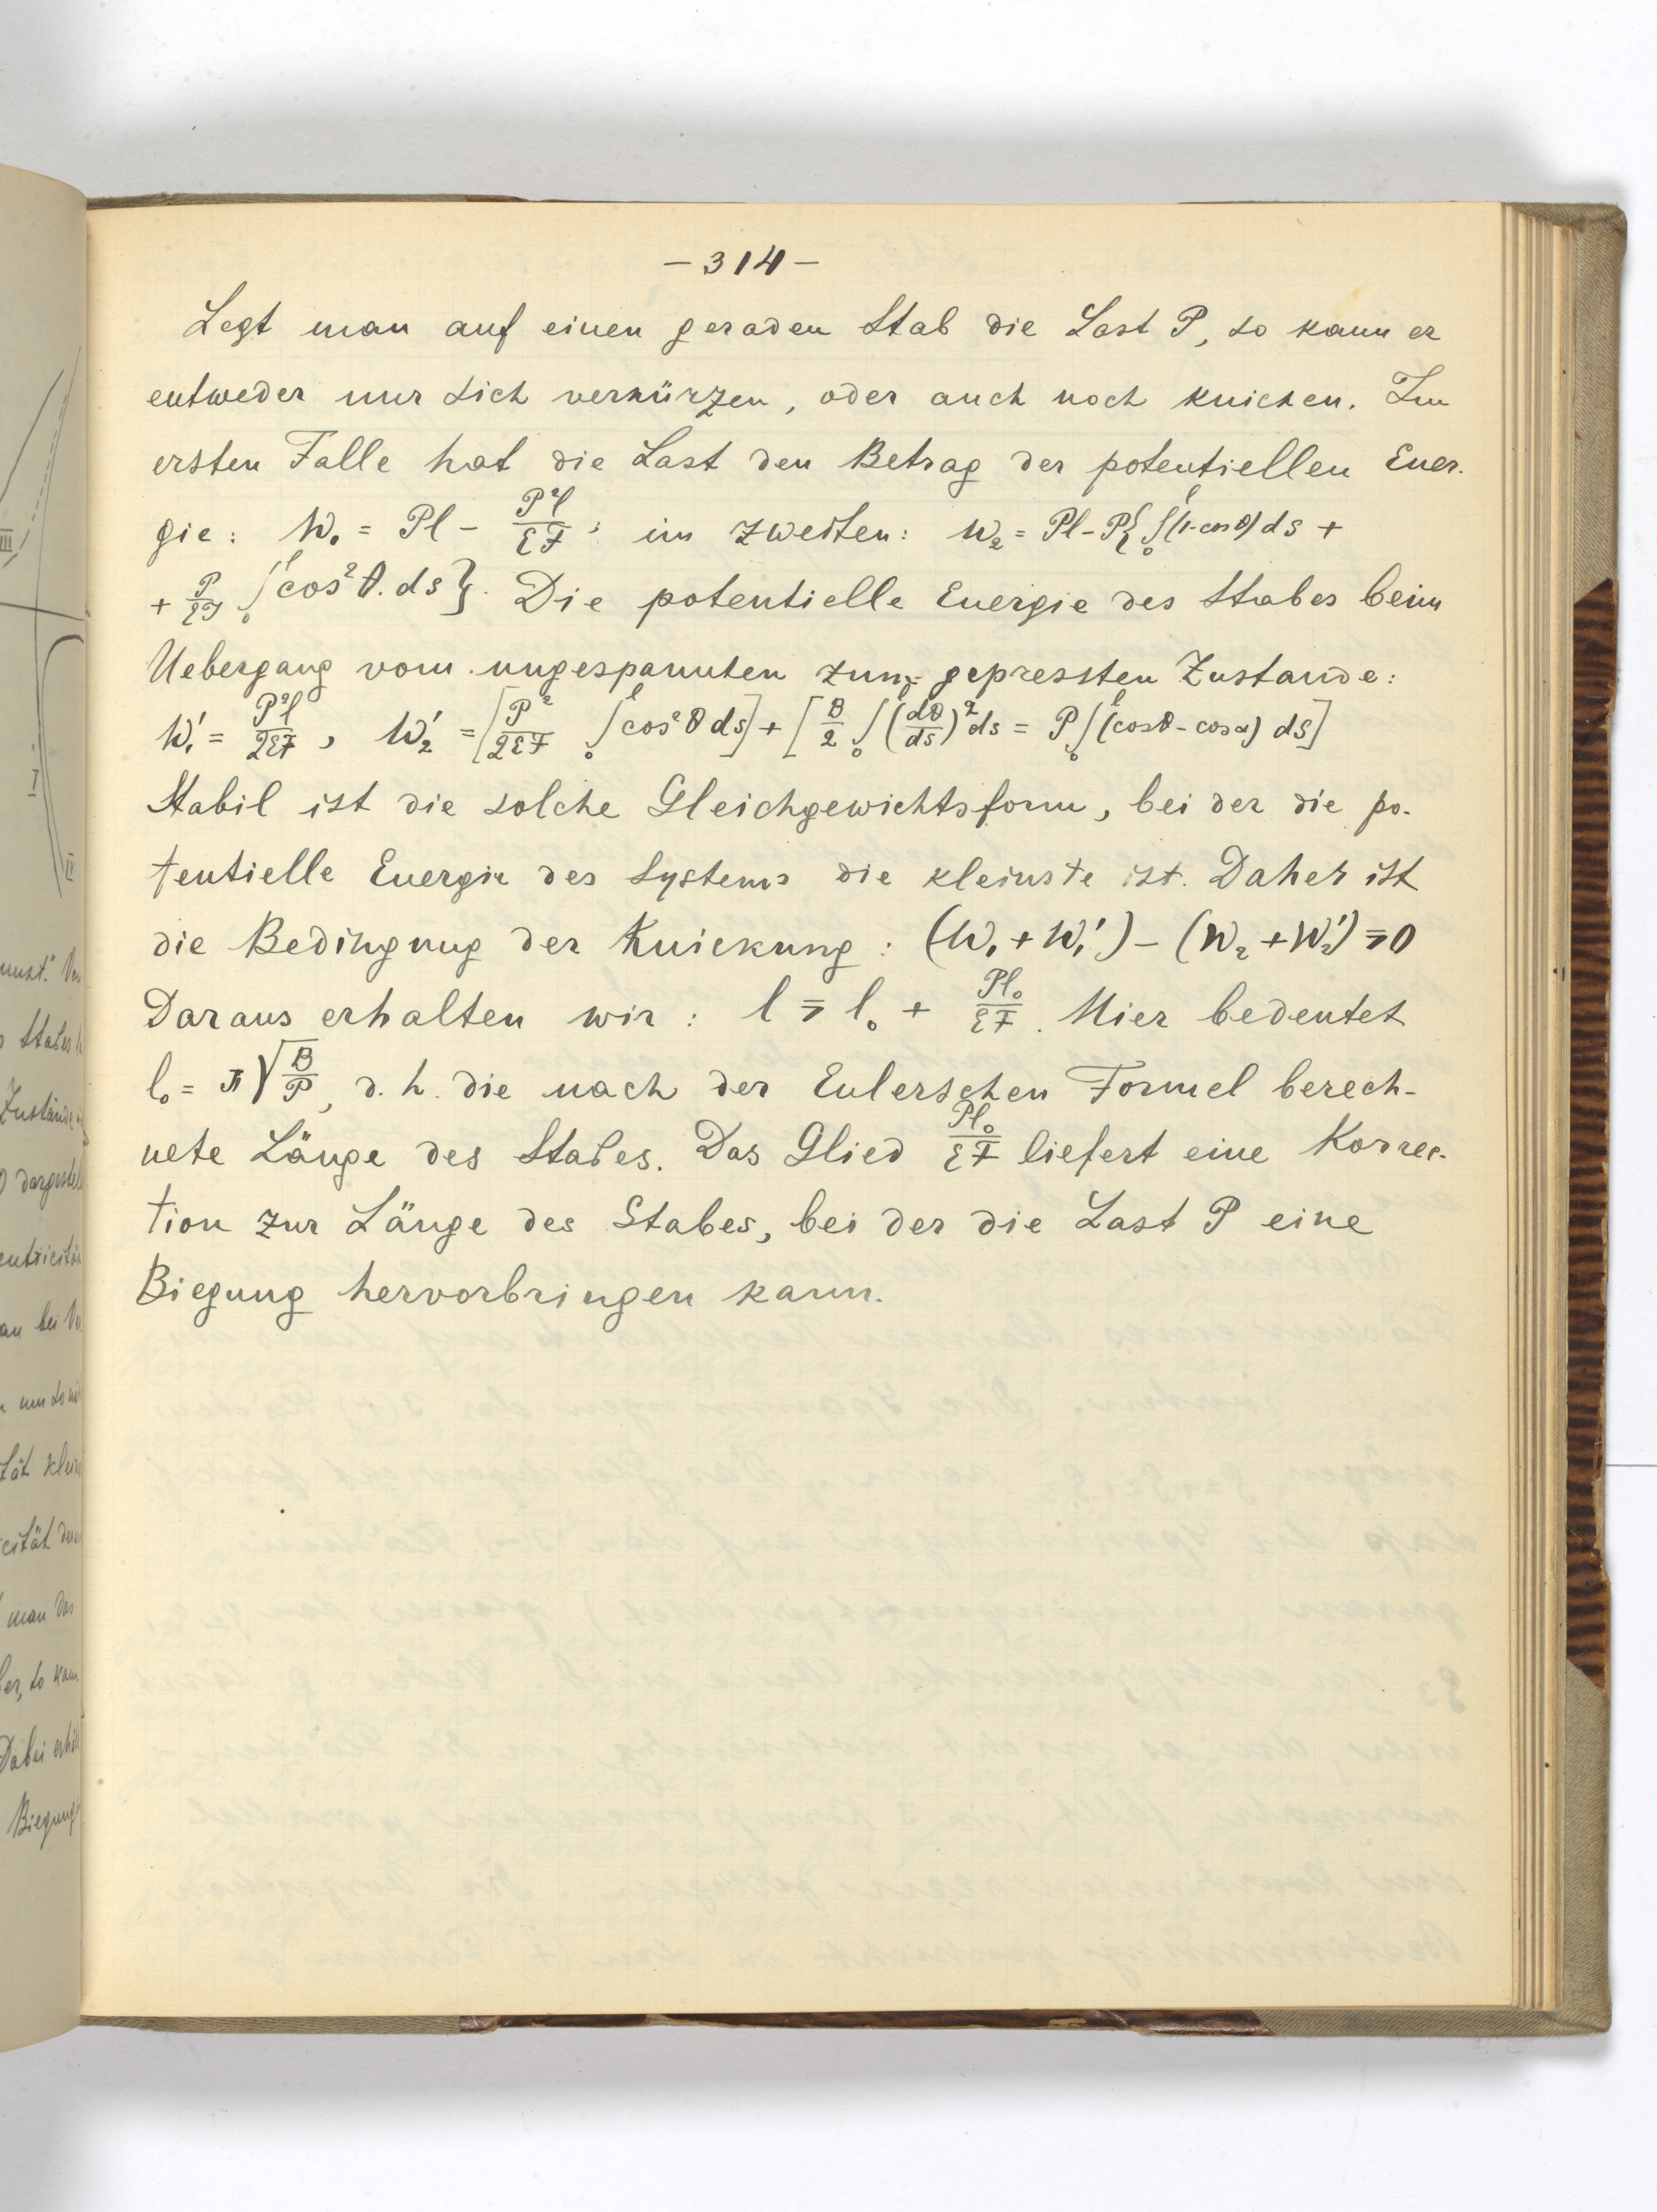 – 314 –
Legt man auf einen geraden Stab die Last P, so kann er
entweder nur sich verkürzen, oder auch noch knicken. Im
ersten Falle hat die Last den Betrag der potentiellen Ener-
gie: W₁ = Pl – P²l/εF ; im zweiten: W₂ = Pl – P{∫₀ˡ(1-cosθ)ds +
+ P/εF ∫₀ˡcos²θ.ds}. Die potentielle Energie des Stabes beim
Uebergang vom ungespannten zum gepressten Zustande:
W₁' = P²l/2εF , W₂' = [P²/2εF ∫₀ˡcos²θds] + [B/2 ∫₀ˡ(dθ/ds)²ds = P∫₀ˡ(cosθ-cosα) ds]
Stabil ist die solche Gleichgewichtsform, bei der die po-
tentielle Energie des Systems die kleinste ist. Daher ist
die Bedingung der Knickung: (W₁ + W₁') – (W₂ + W₂') ⩾ 0
Daraus erhalten wir: l ⩾ l₀ + Pl₀/εF. Hier bedeutet
l₀ = π√B/P, d. h. die nach der Eulerschen Formel berech-
nete Länge des Stabes. Das Glied Pl₀/εF liefert eine Korrec-
tion zur Länge des Stabes, bei der die Last P eine
Biegung hervorbringen kann.